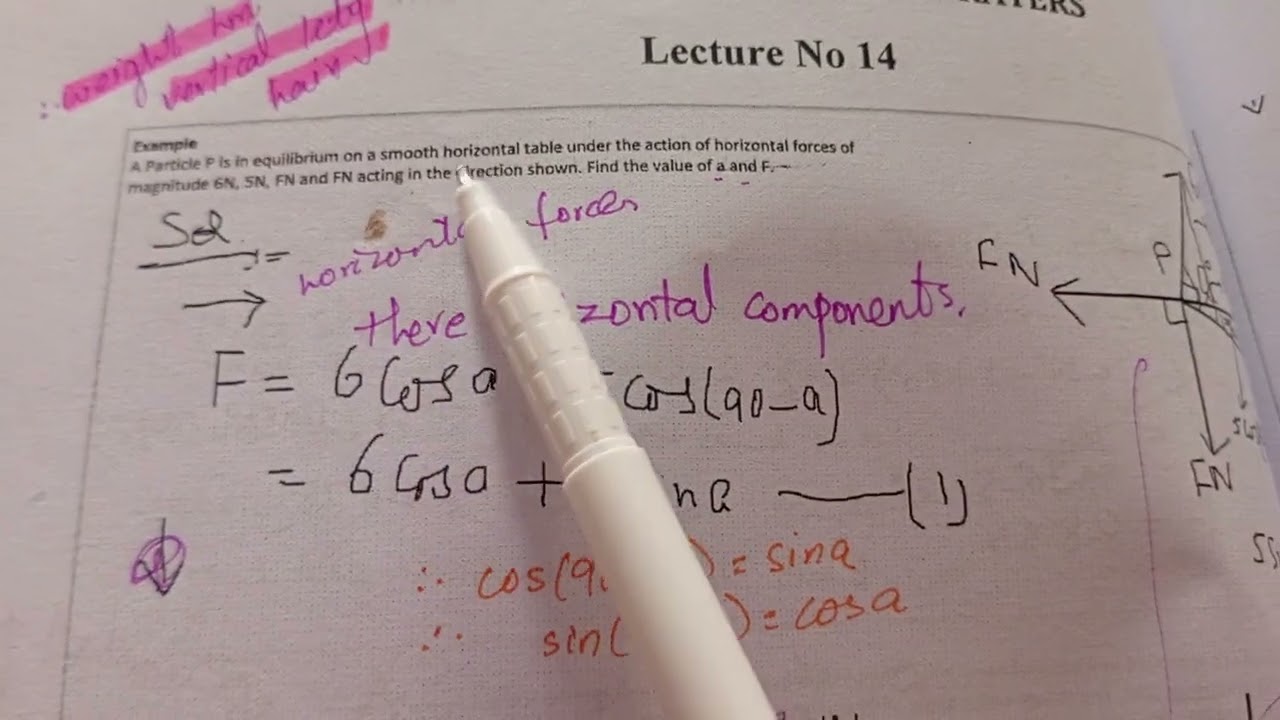 Lecture No 14
∴ weight
vertical
Example
A Particle P is in equilibrium on a smooth horizontal table under the action of horizontal forces of
magnitude 6N, 5N, FN and FN acting in the direction shown. Find the value of a and F.
Sol
horizontal forces
→ there zontal components.
F = 6 Cos a cos(90-a)
= 6 Cos a + (1)
∴ cos(9 ) = sina
∴ sin( ) = cosa
FN
P
FN